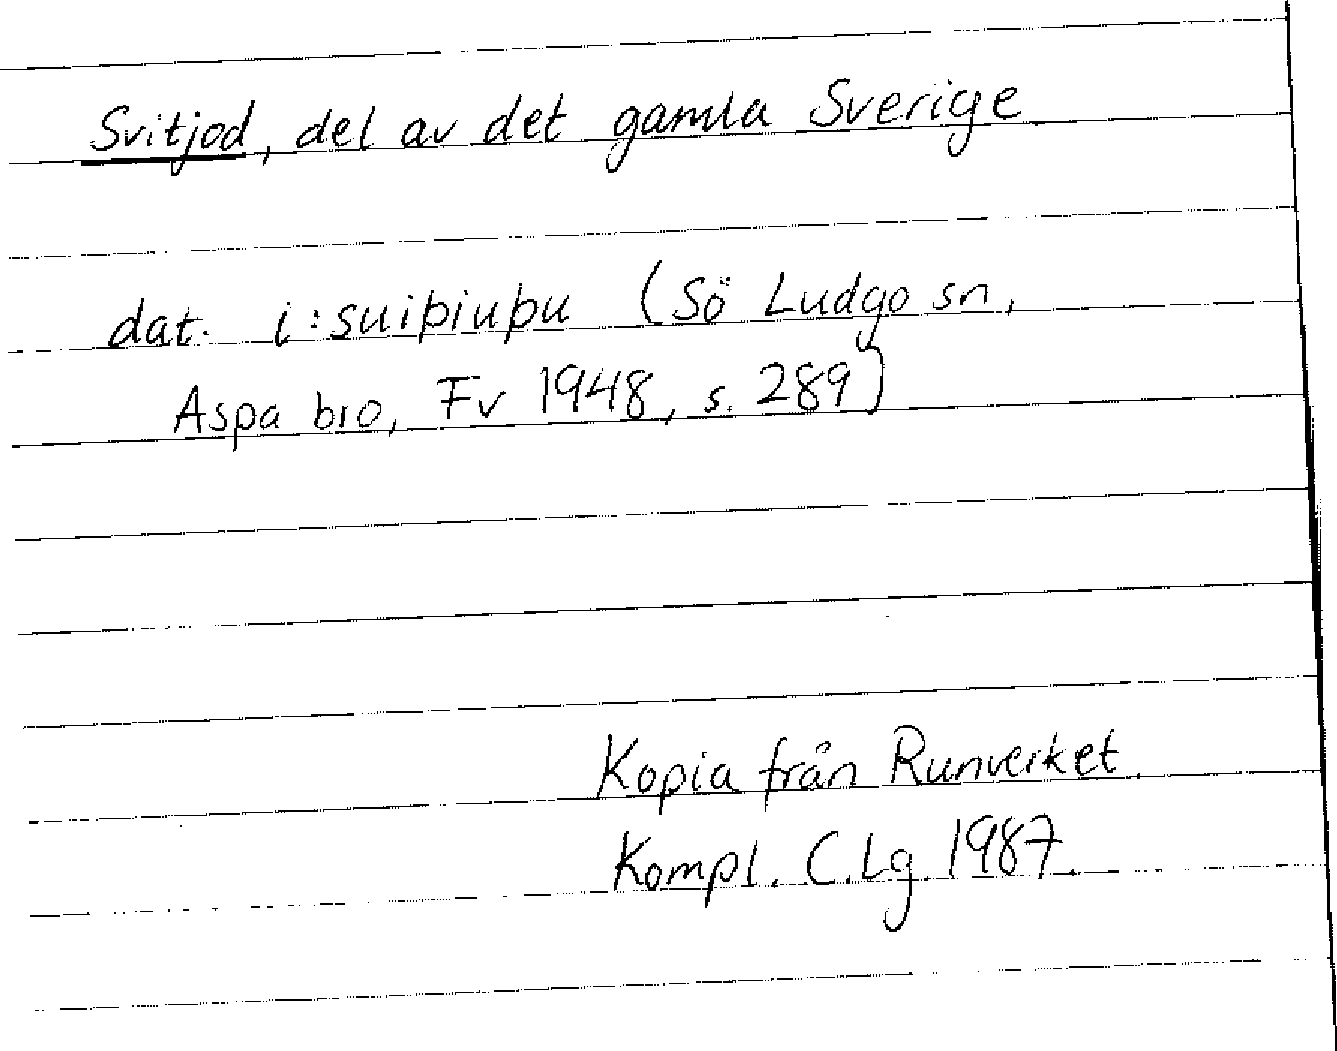 Svitjod, del av det gamla Sverige
dat. i:suiþiuþu (Sö Ludgo sn,
Aspa bro, Fv 1948, s. 289)
Kopia från Runverket.
Kompl. C.Lg. 1987.